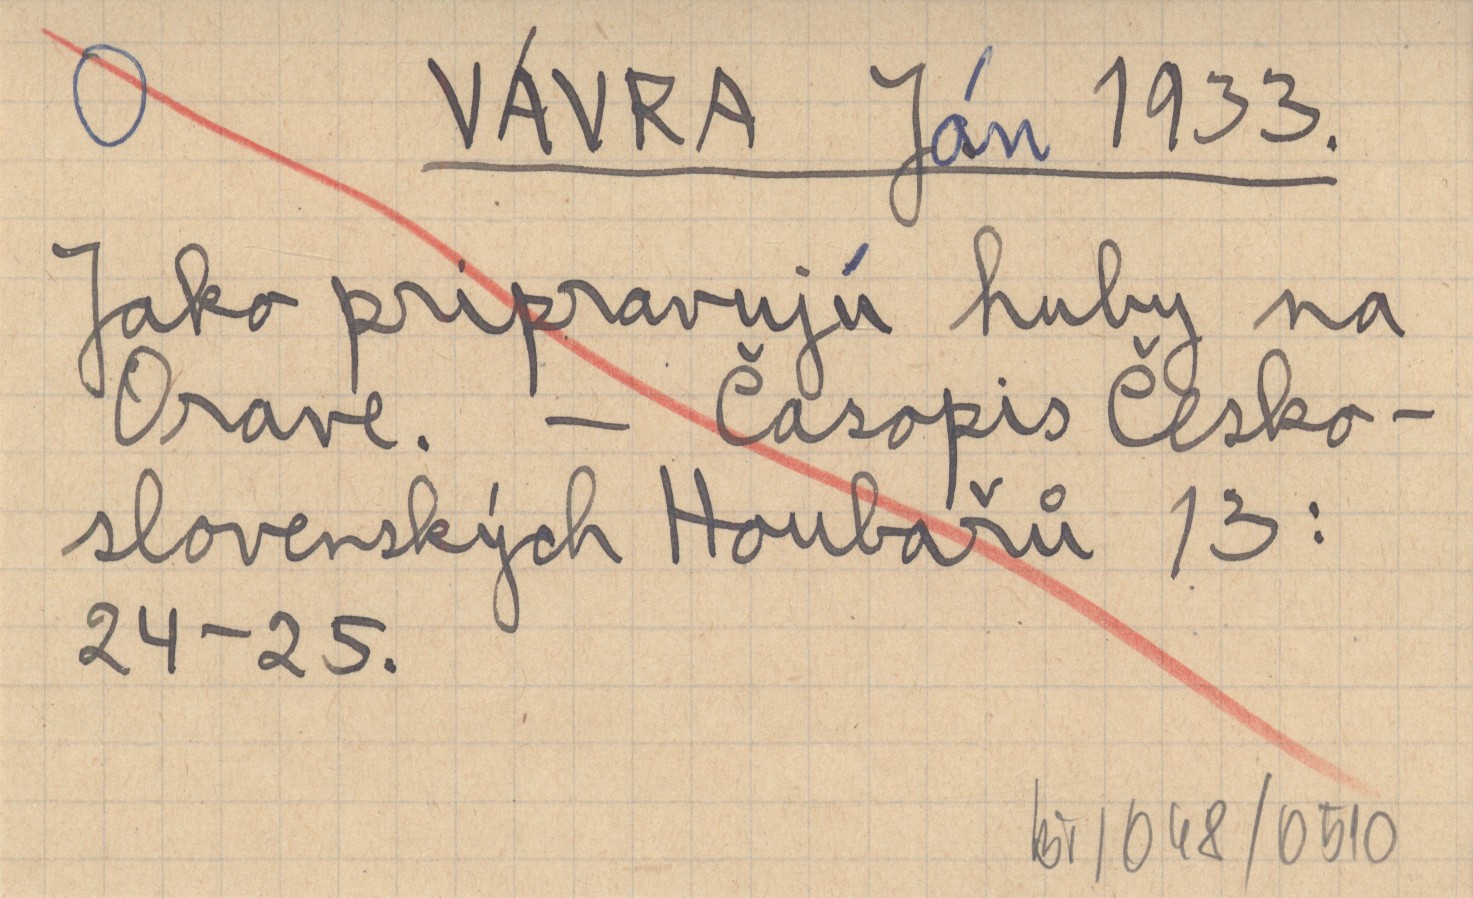 O VÁVRA Ján 1933.
Jako pripravujú huby na
Orave. — Časopis Česko-
slovenských Houbařů 13:
24-25.
/048/0510